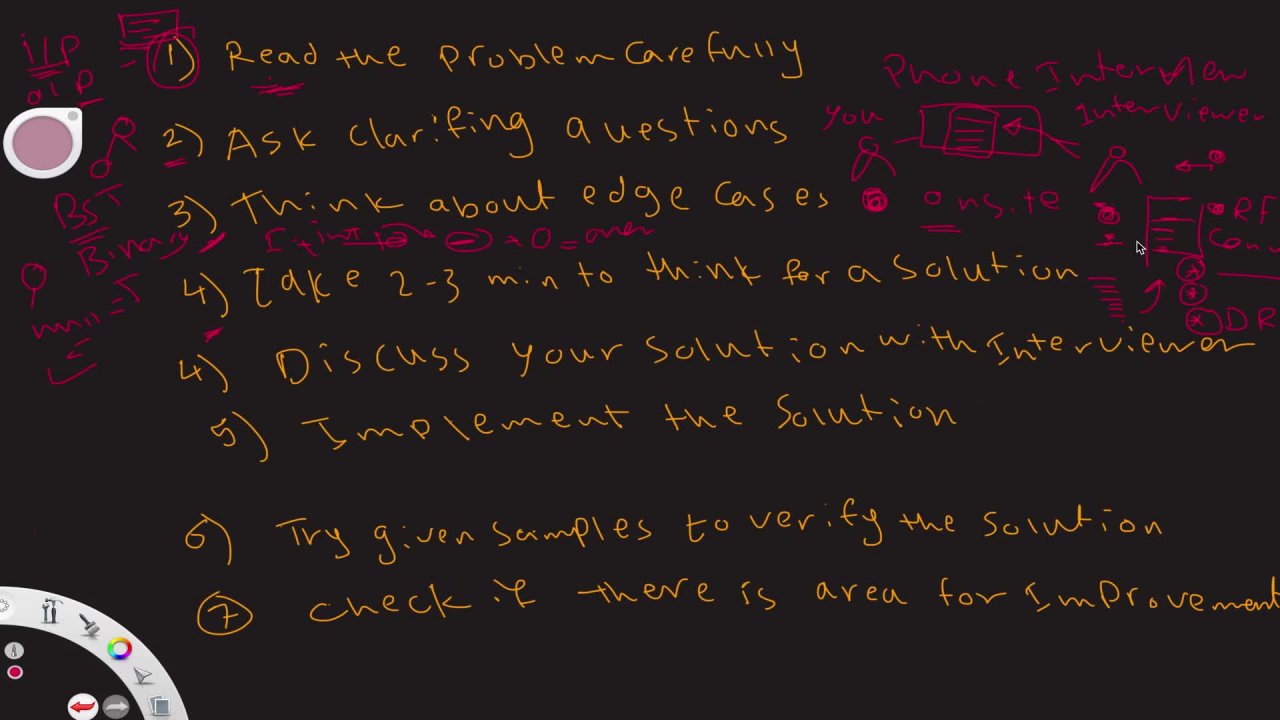 1) Read the problem Carefully
2) Ask clarifing questions
3) Think about edge cases
4) Take 2-3 min to think for a solution
4) Discuss your solution with Interviewer
5) Implement the Solution
6) Try given samples to verify the solution
7 check if there is area for Improvement
i/p
o/p
BST
Binary
Phone Interview
You
InterViewer
onsite
DR